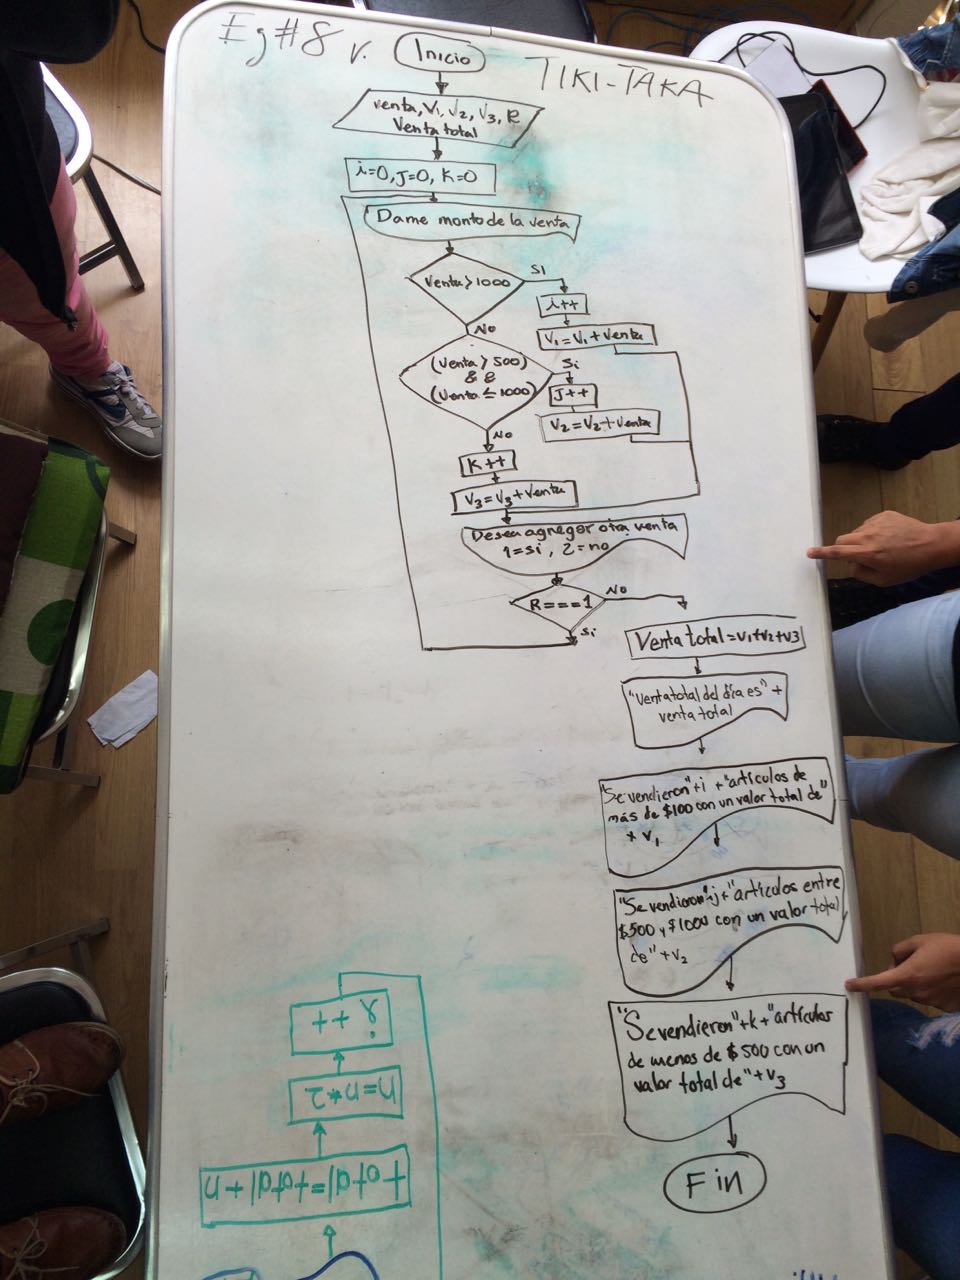 Ej#8 v.
Inicio
TIKI-TAKA
venta, V1, V2, V3, R
Venta total
i=0, J=0, K=0
Dame monto de la venta
Venta > 1000
SI
i++
V1=V1+Venta
No
(Venta > 500)
& &
(Venta ≤ 1000)
Si
J++
V2=V2+Venta
No
K++
V3=V3+Venta
Desea agregar otra venta
1=si, 2=no
R===1
No
Si
Venta total=V1+V2+V3
"Venta total del día es" +
venta total
"Se vendieron"+i +"artículos de
más de $100 con un valor total de"
+ V1
"Se vendieron"+j+"artículos entre
$500 y $1000 con un valor total
de"+V2
"Se vendieron"+k+"artículos
de menos de $500 con un
valor total de"+V3
Fin
total=total+n
n=n*2
i++